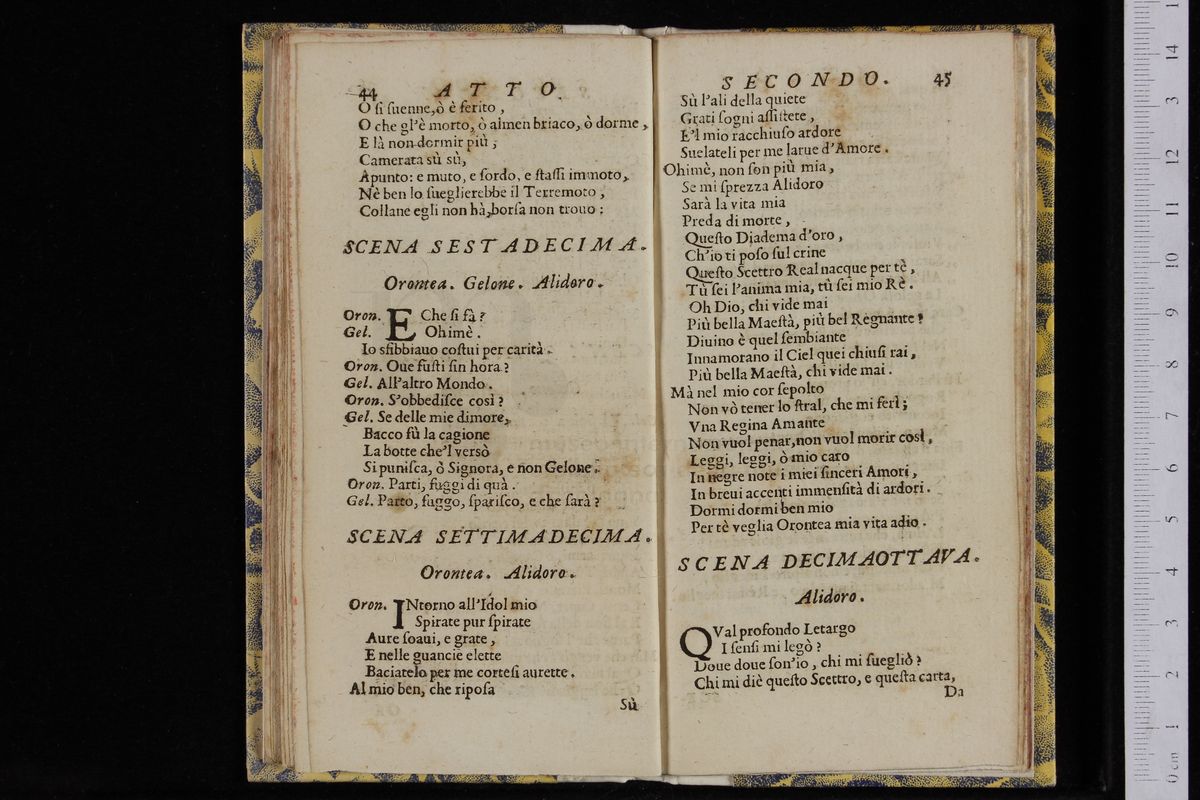 44 ATTO.
O si suenne, ò è ferito,
O che gl'è morto, ò almen briaco, ò dorme,
E là non dormir più;
Camerata sù sù,
Apunto: e muto, e sordo, e stassi immoto,
Nè ben lo sueglierebbe il Terremoto,
Collane egli non hà, borsa non trouo:
SCENA SESTADECIMA.
Orontea. Gelone. Alidoro.
Oron. E Che si fà?
Gel. Ohimè.
Io sfibbiauo costui per carità.
Oron. Oue fusti sin hora?
Gel. All'altro Mondo.
Oron. S'obbedisce così?
Gel. Se delle mie dimore,
Bacco fù la cagione
La botte che'l versò
Si punisca, ò Signora, e non Gelone.
Oron. Parti, fuggi di quà.
Gel. Parto, fuggo, sparisco, e che sarà?
SCENA SETTIMADECIMA.
Orontea. Alidoro.
Oron. INtorno all'Idol mio
Spirate pur spirate
Aure soaui, e grate,
E nelle guancie elette
Baciatelo per me cortesi aurette.
Al mio ben, che riposa
Sù
SECONDO. 45
Sù l'ali della quiete
Grati sogni assistete,
E'l mio racchiuso ardore
Suelateli per me larue d'Amore.
Ohimè, non son più mia,
Se mi sprezza Alidoro
Sarà la vita mia
Preda di morte,
Questo Diadema d'oro,
Ch'io ti poso sul crine
Questo Scettro Real nacque per tè,
Tù sei l'anima mia, tù sei mio Rè.
Oh Dio, chi vide mai
Più bella Maestà, più bel Regnante?
Diuino è quel sembiante
Innamorano il Ciel quei chiusi rai,
Più bella Maestà, chi vide mai.
Mà nel mio cor sepolto
Non vò tener lo stral, che mi ferì;
Vna Regina Amante
Non vuol penar, non vuol morir così,
Leggi, leggi, ò mio caro
In negre note i miei sinceri Amori,
In breui accenti immensità di ardori.
Dormi dormi ben mio
Per tè veglia Orontea mia vita adio.
SCENA DECIMAOTTAVA.
Alidoro.
QVal profondo Letargo
I sensi mi legò?
Doue doue son'io, chi mi suegliò?
Chi mi diè questo Scettro, e questa carta,
Da